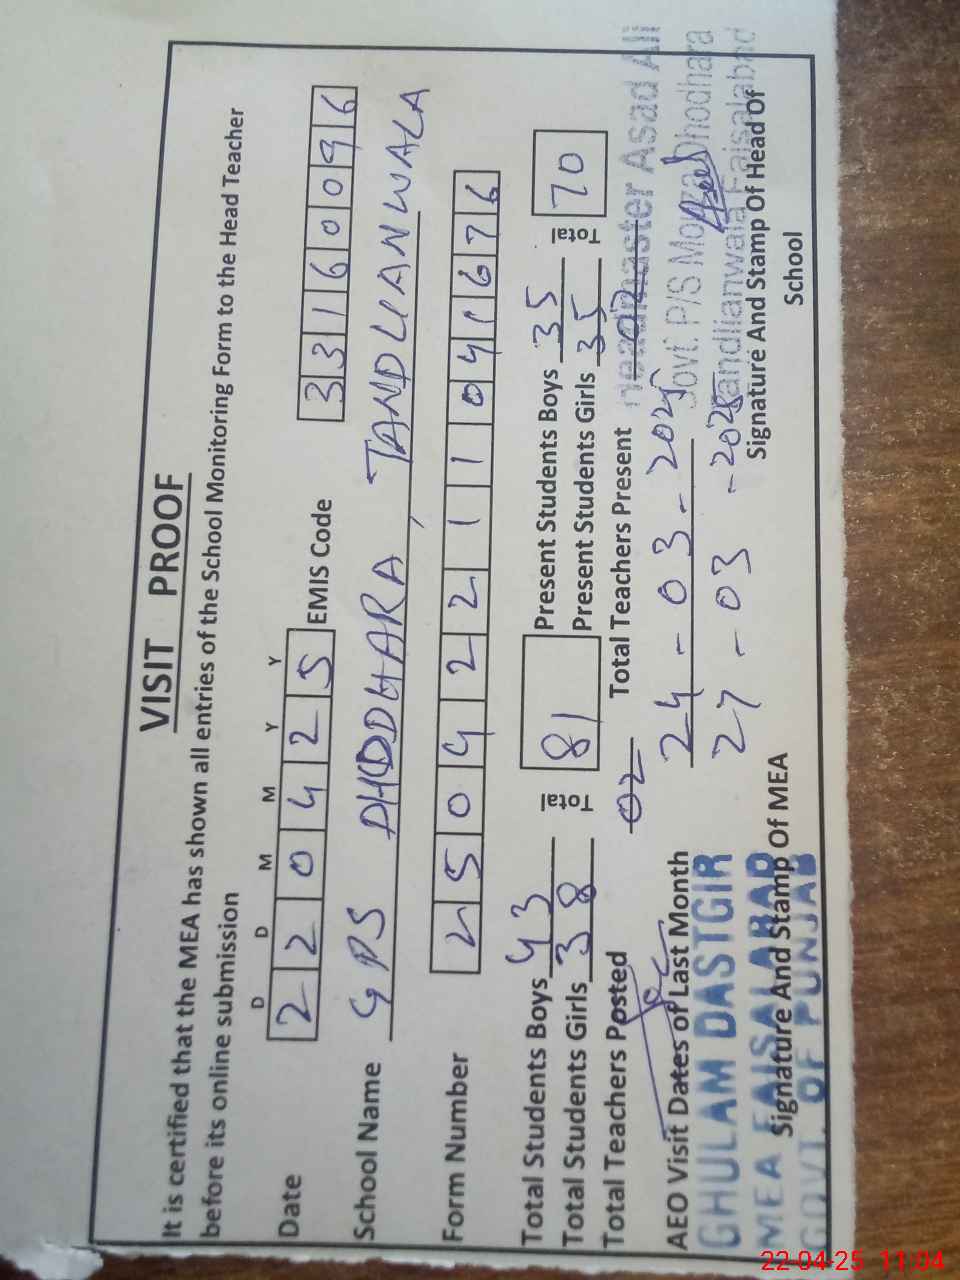 VISIT PROOF
It is certified that the MEA has shown all entries of the School Monitoring Form to the Head Teacher
before its online submission
D D M M Y Y
Date 2 2 0 4 2 5 EMIS Code 3 3 1 6 0 0 9 6
School Name GPS DHDDHARA, TANDLIANWALA
Form Number 2 5 0 4 2 2 1 1 0 4 1 6 7 6
Total Students Boys 43 Total 81 Present Students Boys 35 Total 70
Total Students Girls 38 Present Students Girls 35
Total Teachers Posted 02 Total Teachers Present 02
AEO Visit Dates of Last Month 24-03-2025
27-03-2025
GHULAM DASTGIR
MEA FAISALABAD
GOVT. OF PUNJAB
Signature And Stamp Of MEA
Headmaster Asad Ali
Govt. P/S Mouza Dhodhara
Tandlianwala Faisalabad
Signature And Stamp Of Head Of
School
22-04-25 11:04